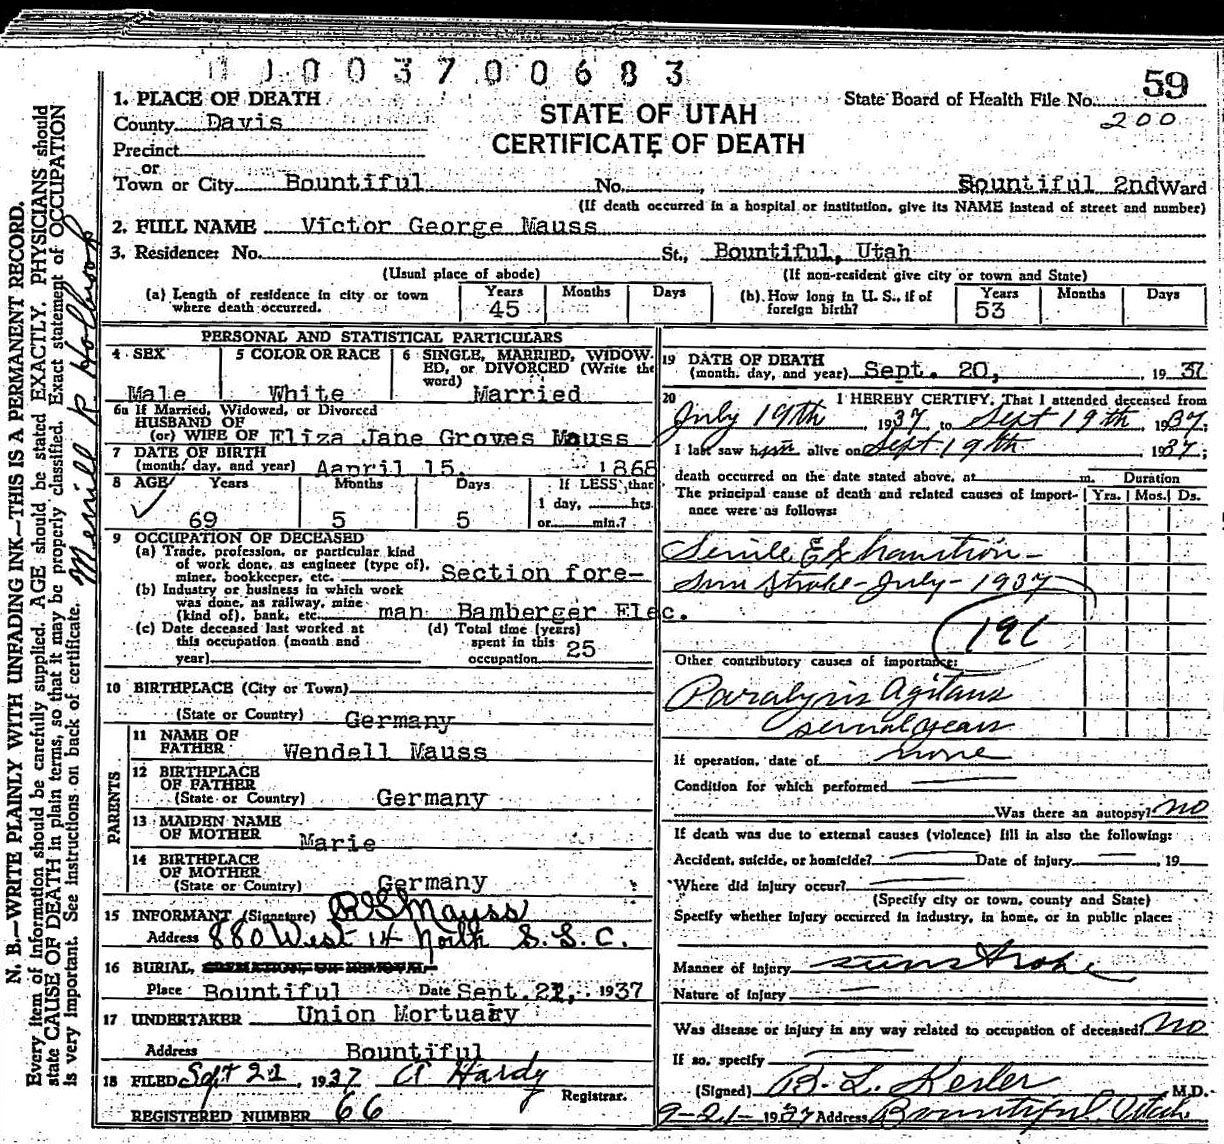 0003700683
59
1. PLACE OF DEATH
STATE OF UTAH
State Board of Health File No.
200
County Davis
CERTIFICATE OF DEATH
Precinct
or
Town or City Bountiful No. , Bountiful 2nd Ward
(If death occurred in a hospital or institution, give its NAME instead of street and number)
2. FULL NAME Victor George Mauss
3. Residence: No. St., Bountiful, Utah
(Usual place of abode) (If non-resident give city or town and State)
(a) Length of residence in city or town where death occurred. Years 45 Months Days
(b) How long in U. S., if of foreign birth? Years 53 Months Days
PERSONAL AND STATISTICAL PARTICULARS
4 SEX Male
5 COLOR OR RACE White
6 SINGLE, MARRIED, WIDOWED, or DIVORCED (Write the word) Married
6a If Married, Widowed, or Divorced
HUSBAND OF
(or) WIFE OF Eliza Jane Groves Mauss
7 DATE OF BIRTH
(month, day, and year) Aapril 15, 1868
8 AGE Years 69 Months 5 Days 5
If LESS than
1 day, hrs.
or min.?
9 OCCUPATION OF DECEASED
(a) Trade, profession, or particular kind
of work done, as engineer (type of),
miner, bookkeeper, etc. Section fore-
(b) Industry or business in which work
was done, as railway, mine
(kind of), bank, etc. man Bamberger Elec.
(c) Date deceased last worked at
this occupation (month and
year)
(d) Total time (years)
spent in this
occupation 25
10 BIRTHPLACE (City or Town)
(State or Country) Germany
PARENTS
11 NAME OF
FATHER Wendell Mauss
12 BIRTHPLACE
OF FATHER
(State or Country) Germany
13 MAIDEN NAME
OF MOTHER Marie
14 BIRTHPLACE
OF MOTHER
(State or Country) Germany
15 INFORMANT (Signature) R S Mauss
Address 880 West 14 North S. L. C.
16 BURIAL, CREMATION, OR REMOVAL
Place Bountiful Date Sept. 22, 1937
17 UNDERTAKER Union Mortuary
Address Bountiful
18 FILED Sept 22, 1937 A Hardy
Registrar.
REGISTERED NUMBER 66
19 DATE OF DEATH
(month, day, and year) Sept. 20, , 1937
20 I HEREBY CERTIFY, That I attended deceased from
July 19th, 1937, to Sept 19th, 1937;
I last saw him alive on Sept 19th 1937;
death occurred on the date stated above, at m.
Duration
The principal cause of death and related causes of importance were as follows:
Yrs. Mos. Ds.
Senile Exhaustion -
Sun Stroke - July - 1937
191
Other contributory causes of importance:
Paralysis Agitans
several years
If operation, date of none
Condition for which performed
Was there an autopsy? no
If death was due to external causes (violence) fill in also the following:
Accident, suicide, or homicide? Date of injury , 19
Where did injury occur?
(Specify city or town, county and State)
Specify whether injury occurred in industry, in home, or in public place:
Manner of injury sunstroke
Nature of injury
Was disease or injury in any way related to occupation of deceased? No
If so, specify
(Signed) B. L. Kesler M.D.
9-21-1937 Address Bountiful, Utah
N. B.—WRITE PLAINLY WITH UNFADING INK—THIS IS A PERMANENT RECORD.
Every item of information should be carefully supplied. AGE should be stated EXACTLY. PHYSICIANS should
state CAUSE OF DEATH in plain terms, so that it may be properly classified. Exact statement of OCCUPATION
is very important. See instructions on back of certificate.
Merrill R Holbrook